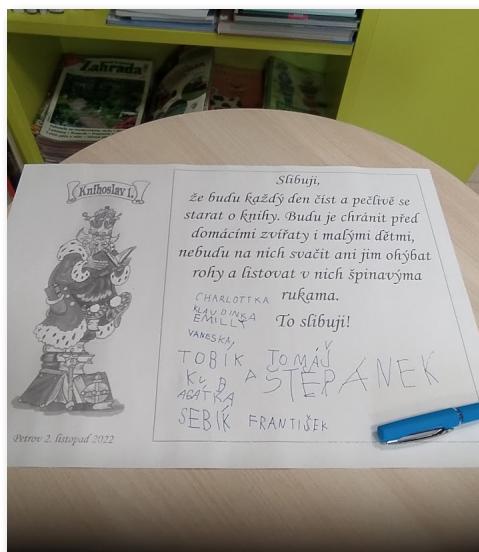 Zahrada
Knihoslav I.
Slibuji,
že budu každý den číst a pečlivě se
starat o knihy. Budu je chránit před
domácími zvířaty i malými dětmi,
nebudu na nich svačit ani jim ohýbat
rohy a listovat v nich špinavýma
rukama.
To slibuji!
CHARLOTTKA
KLAUDINKA
EMILLY
VANESKA,
TOBIK TOMÁŠ
KUBA ŠTĚPÁNEK
AGATKA
SEBÍK FRANTIŠEK
Petrov 2. listopad 2022